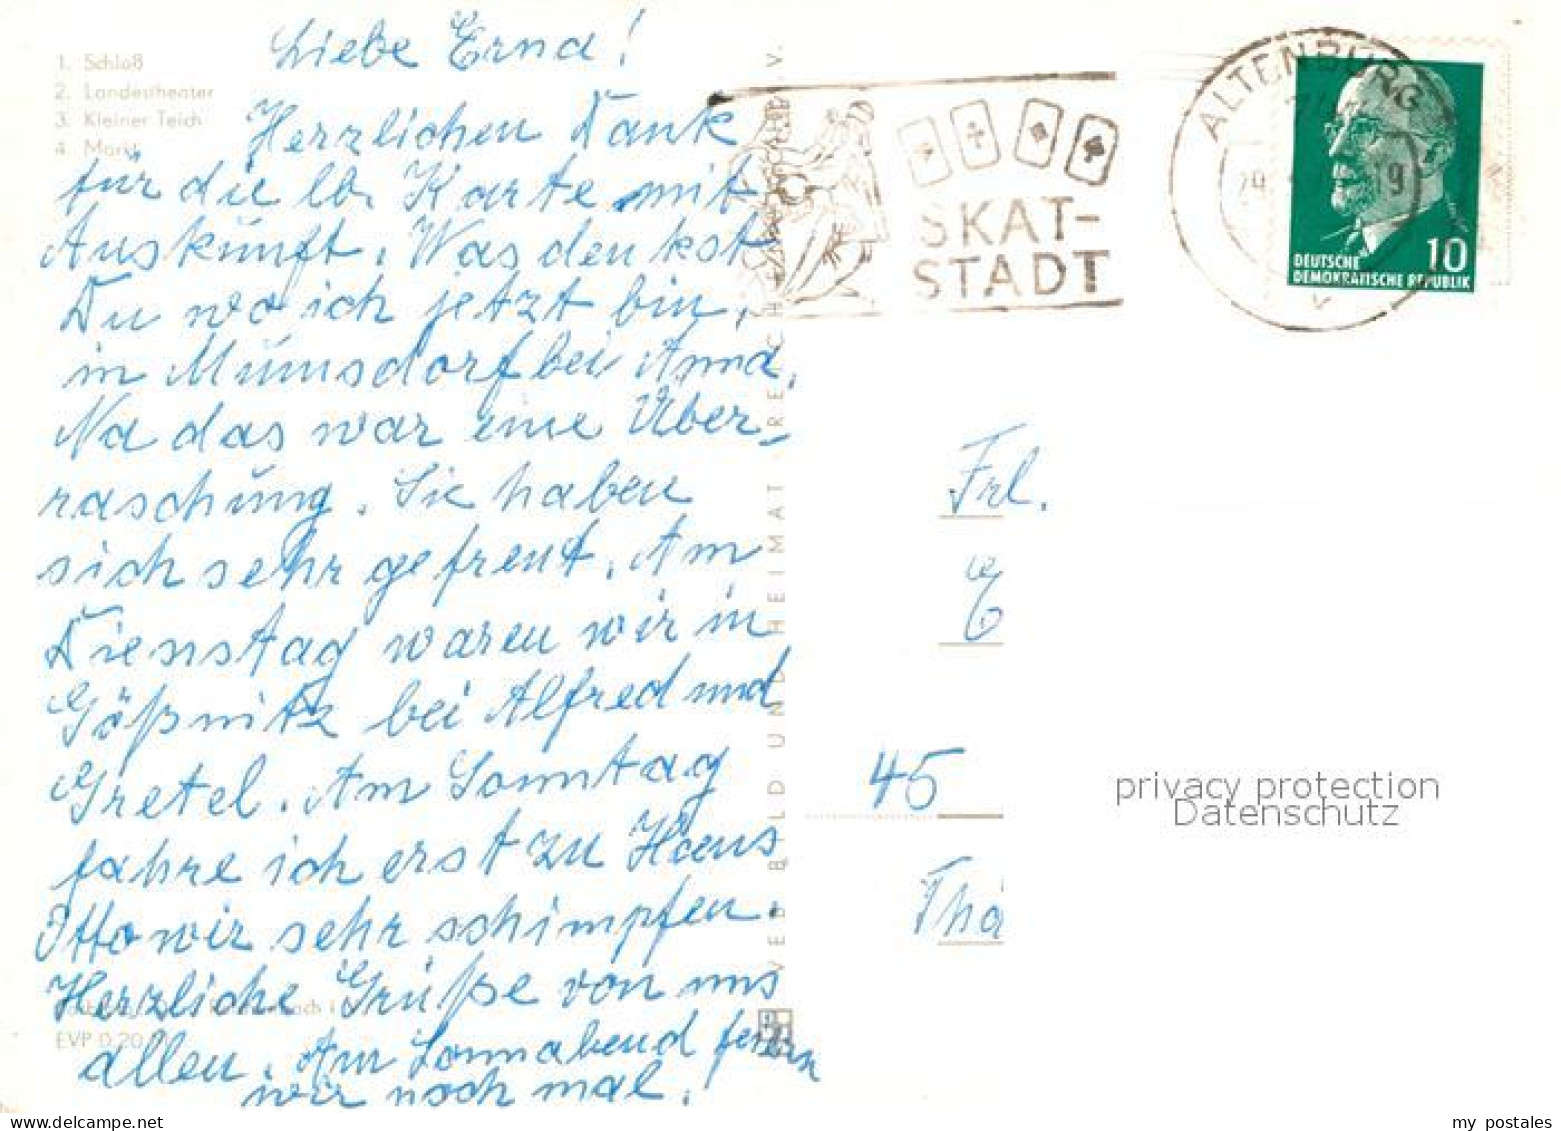 1. Schloß
2. Landestheater
3. Kleiner Teich
4. Markt
Liebe Erna!
Herzlichen Dank
für die lb. Karte mit
Auskunft. Was denkst
Du wo ich jetzt bin,
in Mumsdorf bei Anna.
Na das war eine Über-
raschung. Sie haben
sich sehr gefreut. Am
Dienstag waren wir in
Gößnitz bei Alfred und
Gretel. Am Sonntag
fahre ich erst zu Hans
Otto wir sehr schimpfen.
Herzliche Grüße von uns
allen. Am Sonnabend feiern
wir noch mal.
EVP 0,20
BILD UND HEIMAT
SKAT-
STADT
ALTENBURG
29.
19
v
10
DEUTSCHE
DEMOKRATISCHE REPUBLIK
Frl.
E
45
Thä
privacy protection
Datenschutz
my postales